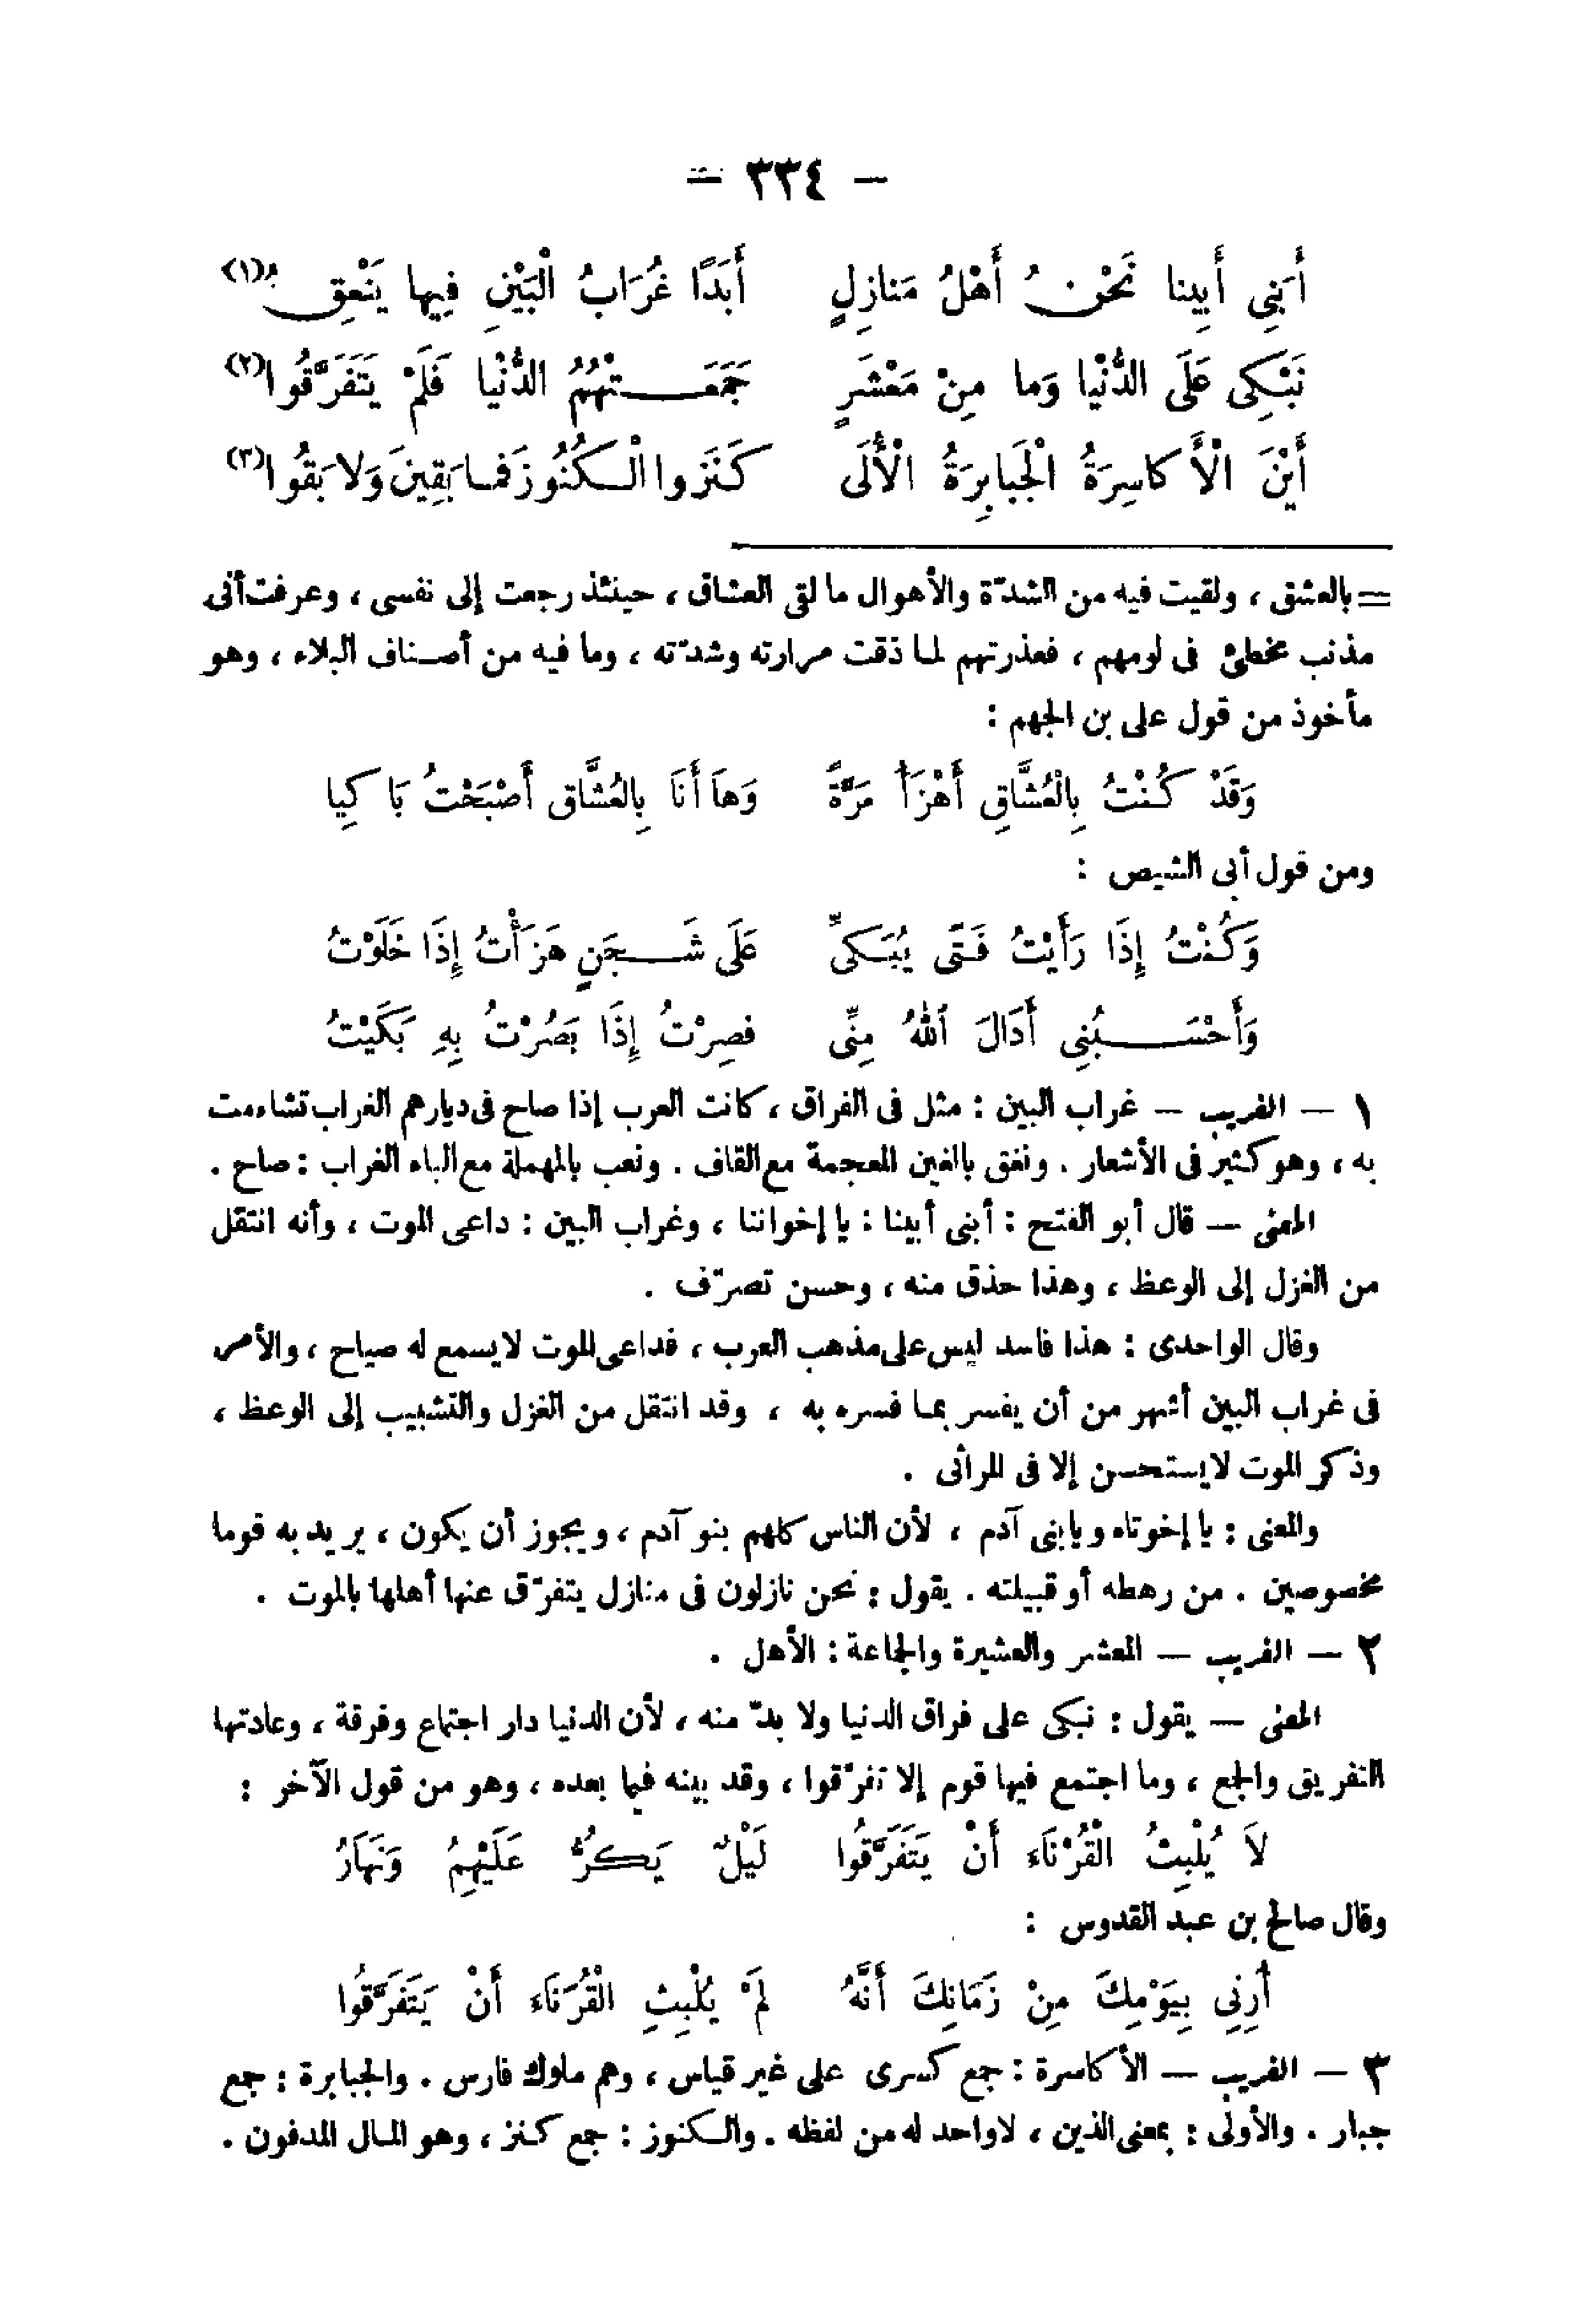 – ٣٣٤ –
أَبَنِى أَبِينا نَحْنُ أَهْلُ مَنازِلٍ أَبَدًا غُرَابُ الْبَيْنِ فِيها يَنْعِقُ (١)
نَبْكِى عَلَى الدُّنْيا وَما مِنْ مَعْشَرٍ جَمَعَتْهُمُ الدُّنْيا فَلَمْ يَتَفَرَّقُوا (٢)
أَيْنَ الْأَكاسِرَةُ الْجَبابِرَةُ الْأُلَى كَنَزُوا الْكُنُوزَ فَما بَقِينَ وَلا بَقُوا (٣)
= بالعشق ، ولقيت فيه من الشدّة والأهوال ما لقى العشاق ، حينئذ رجعت إلى نفسى ، وعرفت أنى
مذنب مخطئ فى لومهم ، فعذرتهم لما ذقت مرارته وشدّته ، وما فيه من أصناف البلاء ، وهو
مأخوذ من قول على بن الجهم :
وَقَدْ كُنْتُ بِالْعُشَّاقِ أَهْزَأُ مَرَّةً وَهَا أَنَا بِالعُشَّاقِ أَصْبَحْتُ بَاكِيا
ومن قول أبى الشيص :
وَكُنْتُ إِذَا رَأَيْتُ فَتًى يُبَكِّى عَلَى شَجَنٍ هَزَأْتُ إِذَا خَلَوْتُ
وَأَحْسَبُنِى أَدَالَ ٱللهُ مِنِّى فصِرْتُ إِذَا بَصُرْتُ بِهِ بَكَيْتُ
١ – الغريب – غراب البين : مثل فى الفراق ، كانت العرب إذا صاح فى ديارهم الغراب تشاءمت
به ، وهو كثير فى الأشعار . ونغق بالغين المعجمة مع القاف . ونعب بالمهملة مع الباء الغراب : صاح .
المعنى – قال أبو الفتح : أبنى أبينا : يا إخواننا ، وغراب البين : داعى الموت ، وأنه انتقل
من الغزل إلى الوعظ ، وهذا حذق منه ، وحسن تصرّف .
وقال الواحدى : هذا فاسد ليس على مذهب العرب ، فداعى الموت لا يسمع له صياح ، والأمر
فى غراب البين أشهر من أن يفسر بما فسره به ، وقد انتقل من الغزل والتشبيب إلى الوعظ ،
وذكر الموت لا يستحسن إلا فى المراثى .
والمعنى : يا إخوتاه ويابنى آدم ، لأن الناس كلهم بنو آدم ، ويجوز أن يكون ، يريد به قوما
مخصوصين . من رهطه أو قبيلته . يقول : نحن نازلون فى منازل يتفرّق عنها أهلها بالموت .
٢ – الغريب – المعشر والعشيرة والجماعة : الأهل .
المعنى – يقول : نبكى على فراق الدنيا ولا بدّ منه ، لأن الدنيا دار اجتماع وفرقة ، وعادتها
التفريق والجمع ، وما اجتمع فيها قوم إلا تفرّقوا ، وقد بينه فيما بعده ، وهو من قول الآخر :
لَا يُلْبِثُ الْقُرْنَاءَ أَنْ يَتَفَرَّقُوا لَيْلٌ يَكُرُّ عَلَيْهِمُ وَنَهَارُ
وقال صالح بن عبد القدوس :
أَرِنِى بِيَوْمِكَ مِنْ زَمَانِكَ أَنَّهُ لَمْ يُلْبِثِ الْقُرَنَاءَ أَنْ يَتَفَرَّقُوا
٣ – الغريب – الأكاسرة : جمع كسرى على غير قياس ، وهم ملوك فارس . والجبابرة : جمع
جبار . والأولى : بمعنى الذين ، لا واحد له من لفظه . والكنوز : جمع كنز ، وهو المال المدفون .